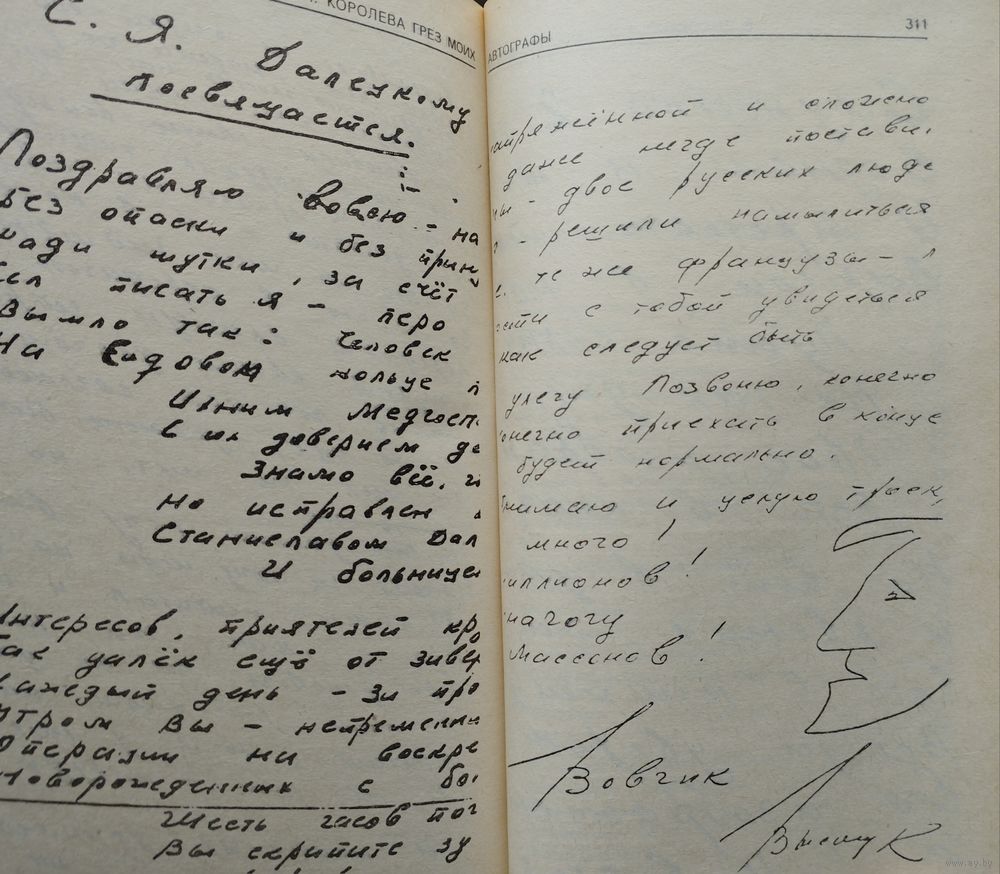 КОРОЛЕВА ГРЕЗ МОИХ
С. Я. Далецкому
посвящается.
Поздравляю вовсю – на
Без опаски и без прин
ради шутки, за счёт
Сел писать я – перо
Вышло так: Человек
На Садовом кольце п
И к ним Медгосп
С их доверием де
Знамо всё,
Но исправлен
Станиславом Дал
И больнице
Интересов, приятелей кр
Так далёк ещё от зиве
Каждый день – за про
Утром Вы – непременн
Операции на воскре
Новорожденных с бо
Шесть часов пог
Вы скрипите зу
АВТОГРАФЫ 311
напряжённой и сложено
даже негде постави
мы – двое русских люде
– решили намылиться
те же французы –
с тобой увидеться
как следует быть
улечу Позвоню, конечно
конечно приехать в конце
будет нормально.
нимаю и целую трое
много!
иллионов!
на гогу
Массонов!
Вовчик
Высоцк
www.ay.by